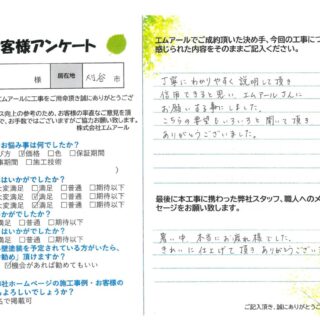 客様アンケート
様
居住地
刈谷 市
エムアールに工事をご用命頂き誠にありがとうござ
ス向上の参考のため、お客様の率直なご意見を頂
で、お手数ではございますがご協力お願い致します。
株式会社エムアール
お悩み事は何でしたか?
び方 ☑価格 □色 □保証期間
事期間 □施工技術
はいかがでしたか?
大変満足 ☑満足 □普通 □期待以下
はいかがでしたか?
大変満足 ☑満足 □普通 □期待以下
はいかがでしたか?
壁塗装を予定されている方がいたら、
勧め」頂けますか?
☑機会があれば勧めてもいい
弊社ホームページの施工事例・お客様の
もよろしいでしょうか?
名で掲載可
エムアールでご成約頂いた決め手、今回の工事につ
感じられた内容をそのままご記入ください。
丁寧にわかりやすく説明して頂き
信用できると思い、エムアールさんに
お願いする事にしました。
こちらの希望もいろいろと聞いて頂き
ありがとうございました。
最後に本工事に携わった弊社スタッフ、職人へのメ
セージをお願い致します。
暑い中、本当にお疲れ様でした。
きれいに仕上げて頂きありがとうござい
ご記入頂き、誠にありがとうござ